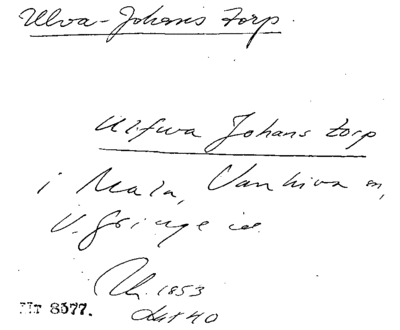 Ulva-Johans torp
Ulfwa Johans torp
i Mala, Vankiva sn,
V. Göinge hd.
Um. 1853
Akt 40
Nr 8577.